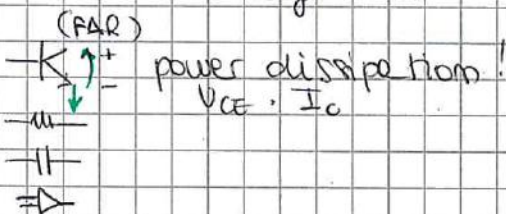 (FAR)
+ power dissipation!
-
VCE · IC